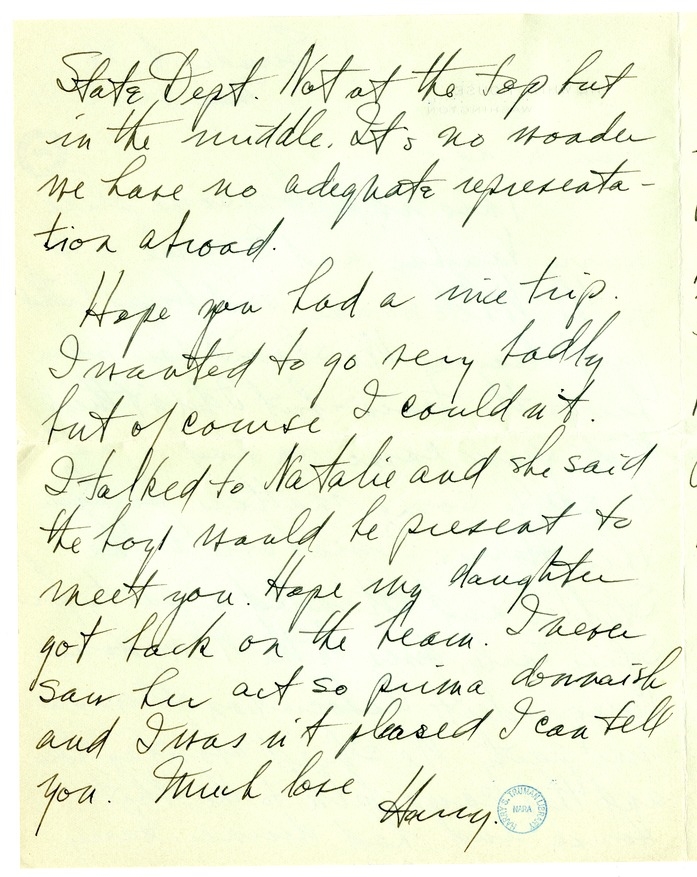 State Dept. Not at the top but
in the middle. It's no wonder
we have no adequate representa-
tion abroad.
Hope you had a nice trip.
I wanted to go very badly
but of course I could n't.
I talked to Natalie and she said
the boys would be present to
meet you. Hope my daughter
got back on the beam. I never
saw her act so prima donnaish
and I was n't pleased I can tell
you. Much love
Harry.
HARRY S. TRUMAN LIBRARY
NARA